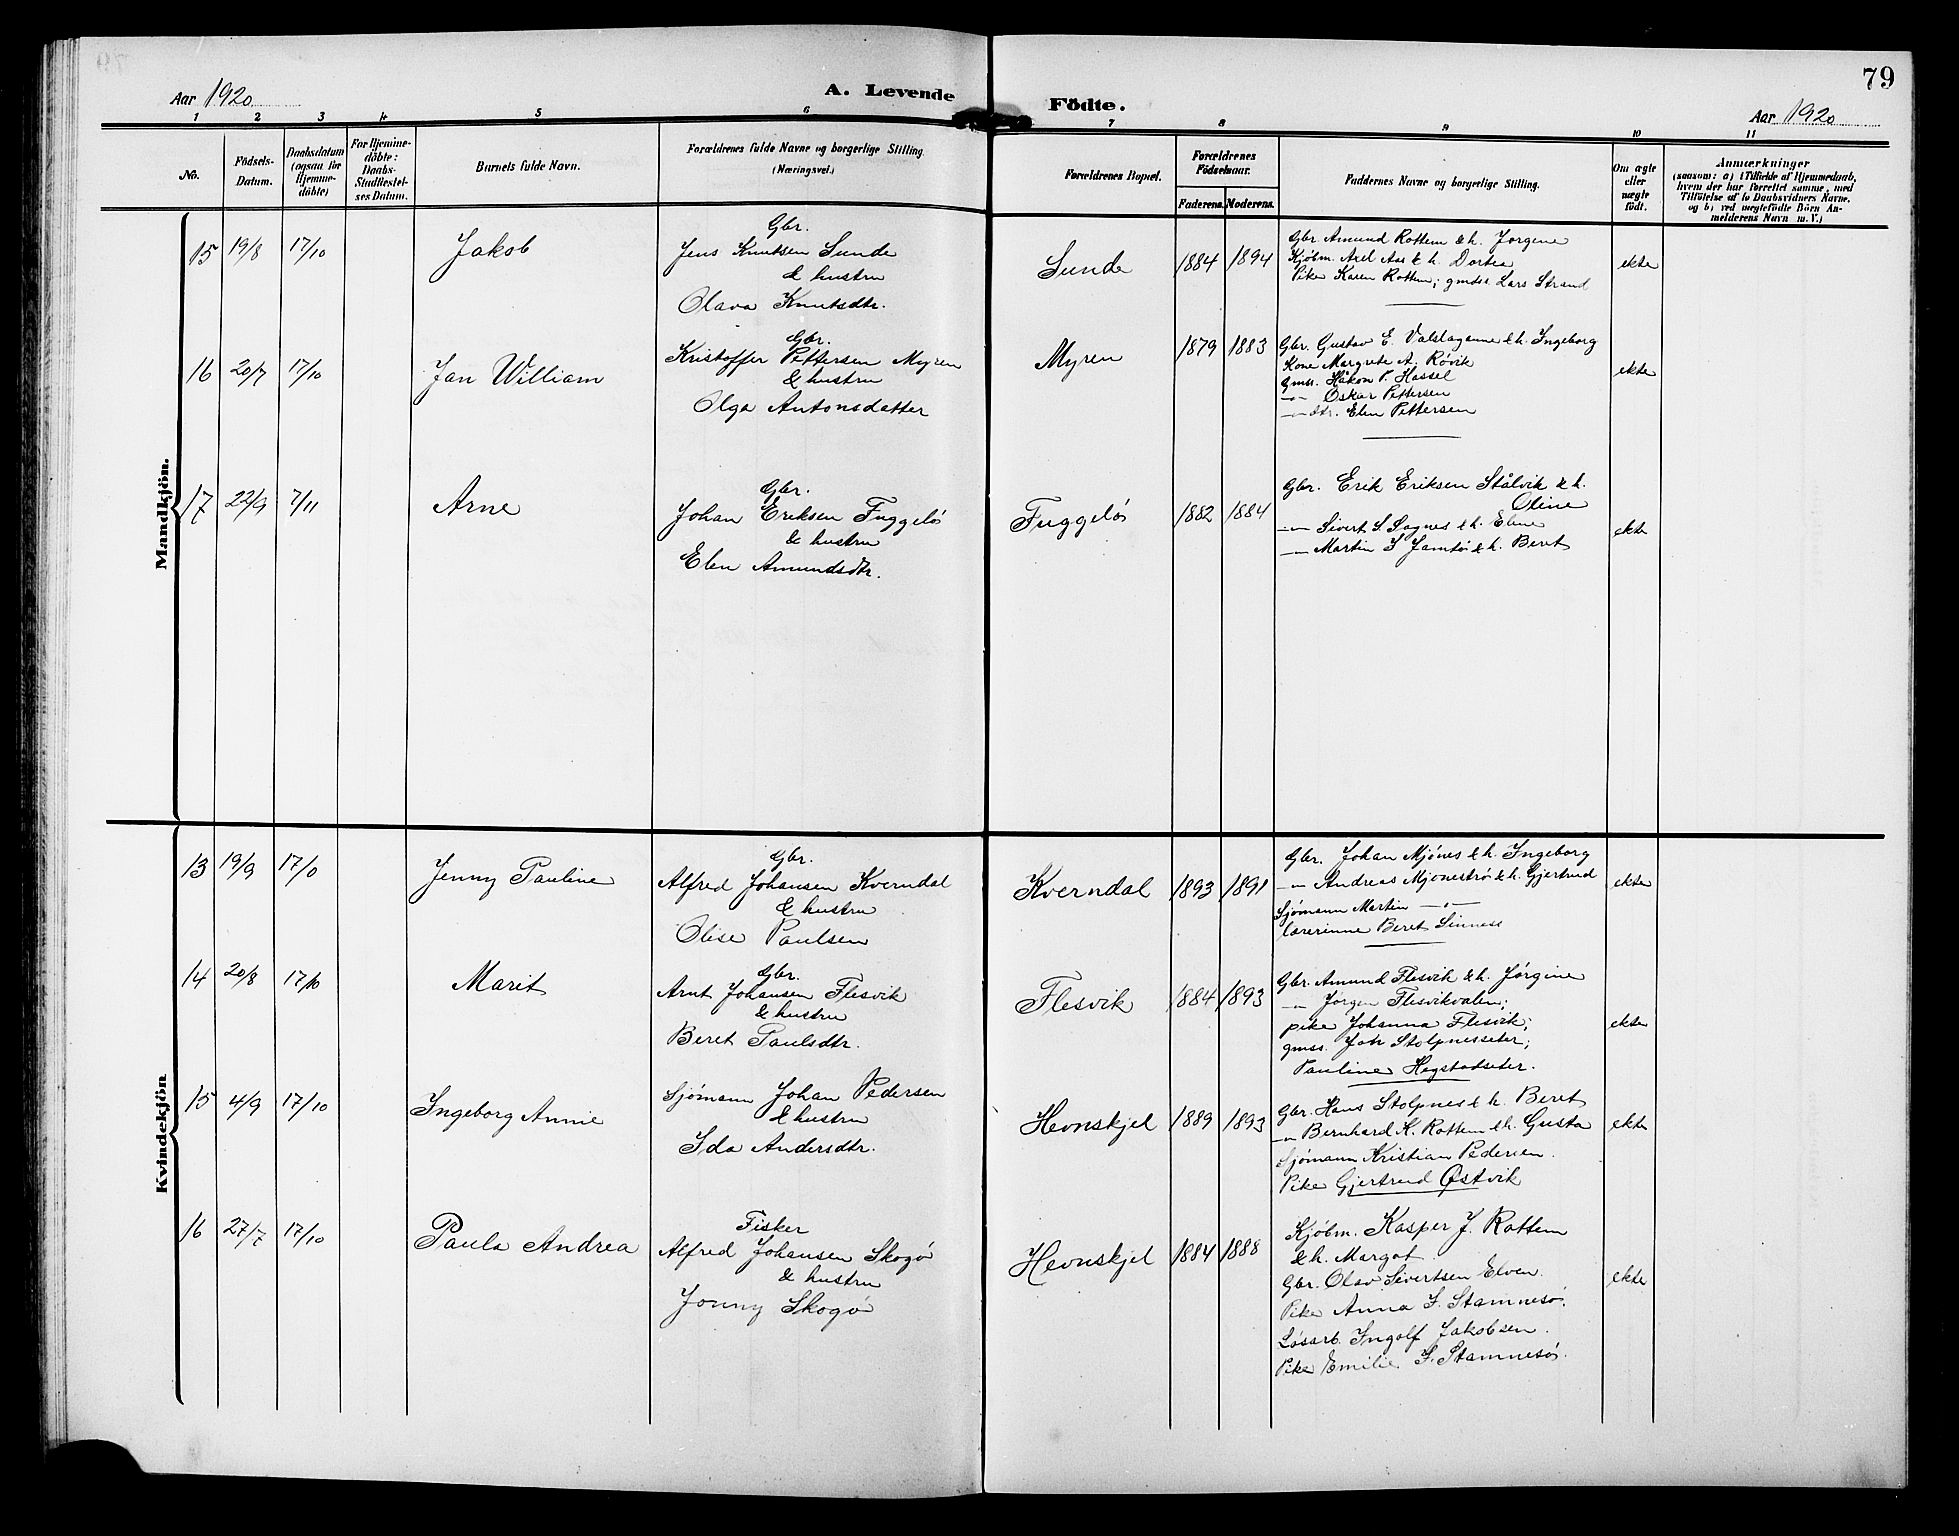 79
Aar 1920
A. Levende Födte.
Aar 1920
1 2 3 4 5 6 7 8 9 10 11
No.
Födsels-
Datum.
Daabsdatum
(ogsaa for
Hjemme-
döbte)
For Hjemme-
döbte:
Daabs-
Stadfestel-
ses Datum.
Barnets fulde Navn.
Forældrenes fulde Navne og borgerlige Stilling
(Næringsvei.)
Forældrenes Bopæl.
Forældrenes
Födselsaar.
Faderens. Moderens.
Faddernes Navne og borgerlige Stilling.
Om ægte
eller
uægte
födt.
Anmærkninger
(saasom: a) i Tilfælde af Hjemmedaab,
hvem der har forrettet samme, med
Tilföielse af to Daabsvidners Navne,
og b) ved uægtefödte Börn An-
melderens Navn m. V.)
Mandkjön.
15 19/8 17/10 Jakob
Gbr.
Jens Knutsen Sunde
& hustru
Olava Knutsdtr.
Sunde 1884 1894
Gbr. Amund Rottem & h. Jorgine
Kjöbm. Axel Aas & h. Dortea
Pike Karen Rottem; gmdss Lars Strand
ekte
16 20/7 17/10 Jan William
Gbr.
Kristoffer Pettersen Myren
& hustru
Olga Antonsdatter
Myren 1879 1883
Gbr. Gustav E. Valslaganne & h. Ingeborg
Kone Margrete A. Rövik
Gmss. Håkon P. Hassel
-"- Oskar Pettersen
-"- dtr. Elen Pettersen
ekte
17 22/9 7/11 Arne
Gbr.
Johan Eriksen Fuggelö
& hustru
Elen Amundsdtr.
Fuggelös 1882 1884
Gbr. Erik Eriksen Stålvik & h.
Oline
-"- Sivert S. Sagnes & h. Eline
-"- Martin S Jamtöi & h. Beret
ekte
Kvindekjön
13 19/9 17/0 Jenny Pauline
Gbr.
Alfred Johansen Kverndal
& hustru
Olise Paulsen
Kverndal 1893 1891
Gbr. Johan Mjönes & h. Ingeborg
-"- Andreas Mjoneströ & h. Gjertrud
Sjömann Martin -"-
lærerinne Beret Sinness
ekte
14 20/8 17/10 Marit
Gbr.
Arnt Johansen Flesvik
& hustru
Beret Paulsdtr.
Flesvik 1884 1893
Gbr. Amund Flesvik & h. Jörgine
-"- Jörgen Flesvikvalen;
pike Johanna Flesvik;
gmss. Joh Stolpnesseter;
Pauline Hegstadseter.
ekte
15 4/9 17/10 Ingeborg Annie
Sjömann Johan Pedersen
& hustru
Ida Andersdtr.
Hevnskjel 1889 1893
Gbr. Hans Stolpnes & h. Beret
-"- Bernhard K. Rottem & h. Gusta
Sjömann Kristian Pedersen.
Pike Gjertrud Østvik
ekte
16 27/7 17/10 Paula Andrea
Fisker
Alfred Johansen Skogö
& hustru
Jonny Skogö
Hevnskjel 1884 1888
Kjöbm. Kasper J. Rottem
& h. Margot.
Gbr. Olav Sivertsen Elven.
Pike Anna S. Stamnesö.
Lösarb. Ingolf Jakobsen.
Pike Emilie S. Stamnesö.
ekte